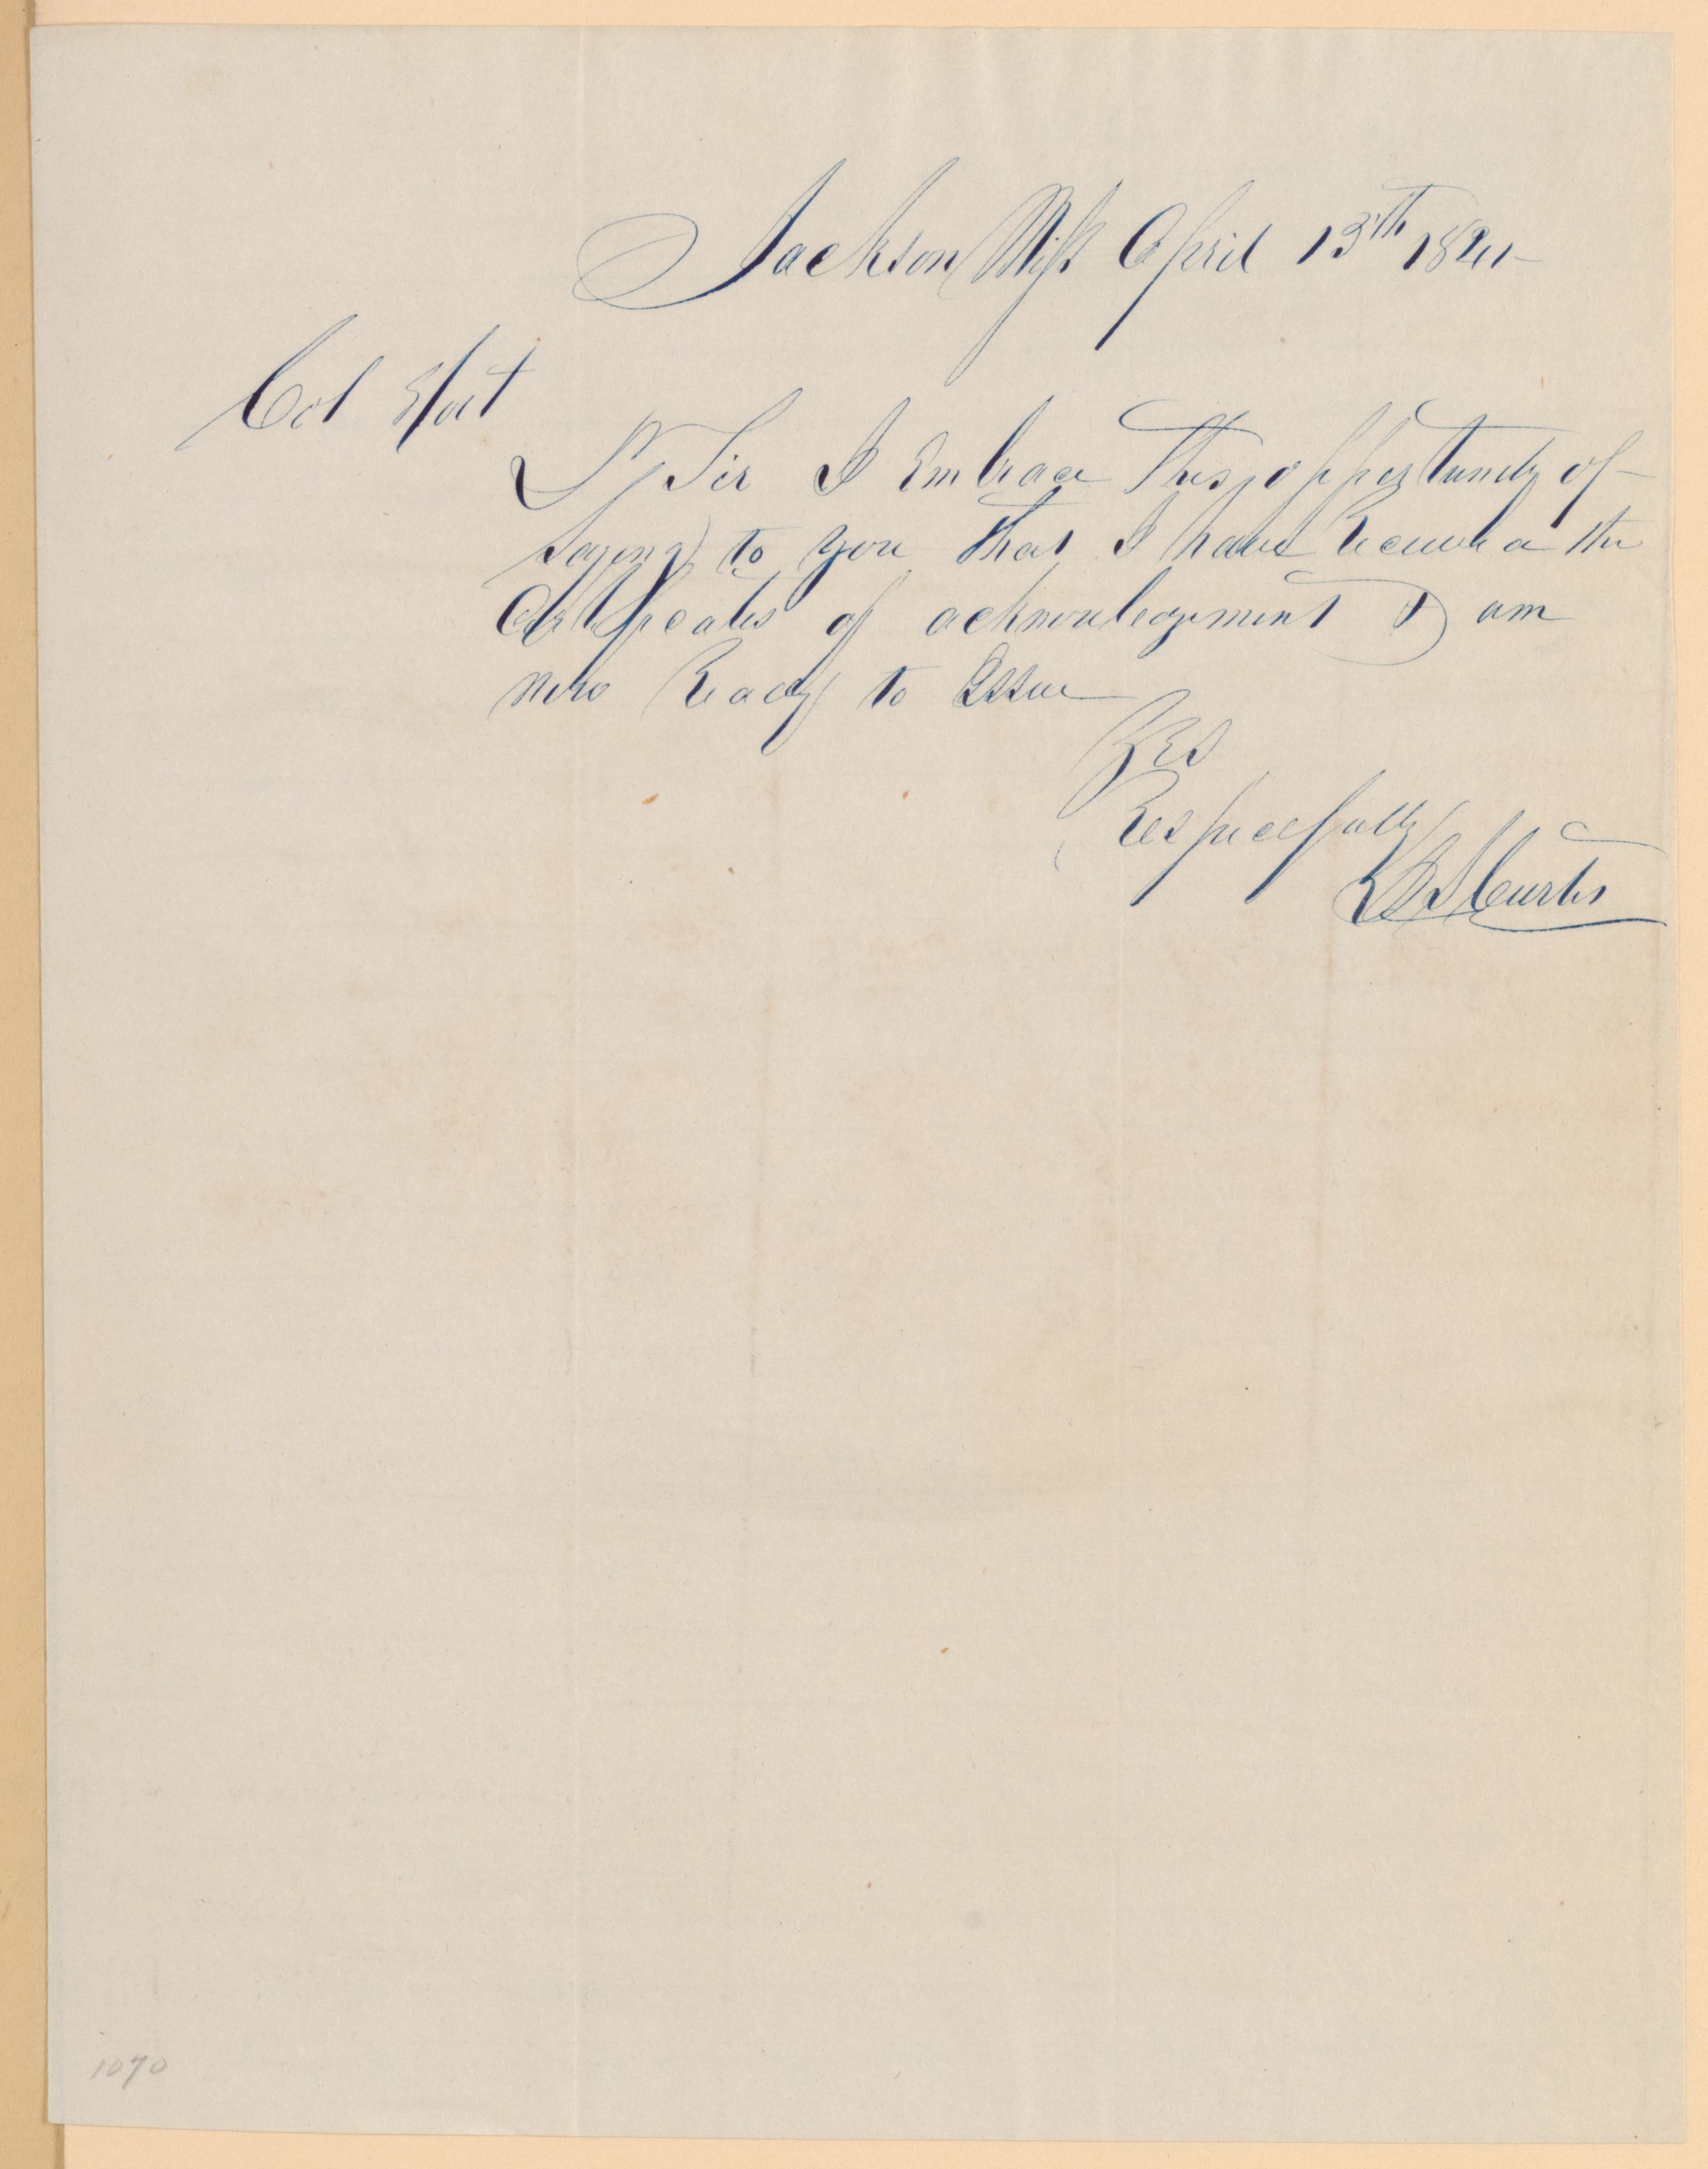 Jackson Miss April 13th 1841
Col
D Sir I Embrace This opportunity of
saying to you that I have Received the
Certificates of acknowledgement & am
now Ready to Issue
Yrs
Respectfully
Curtis
1070